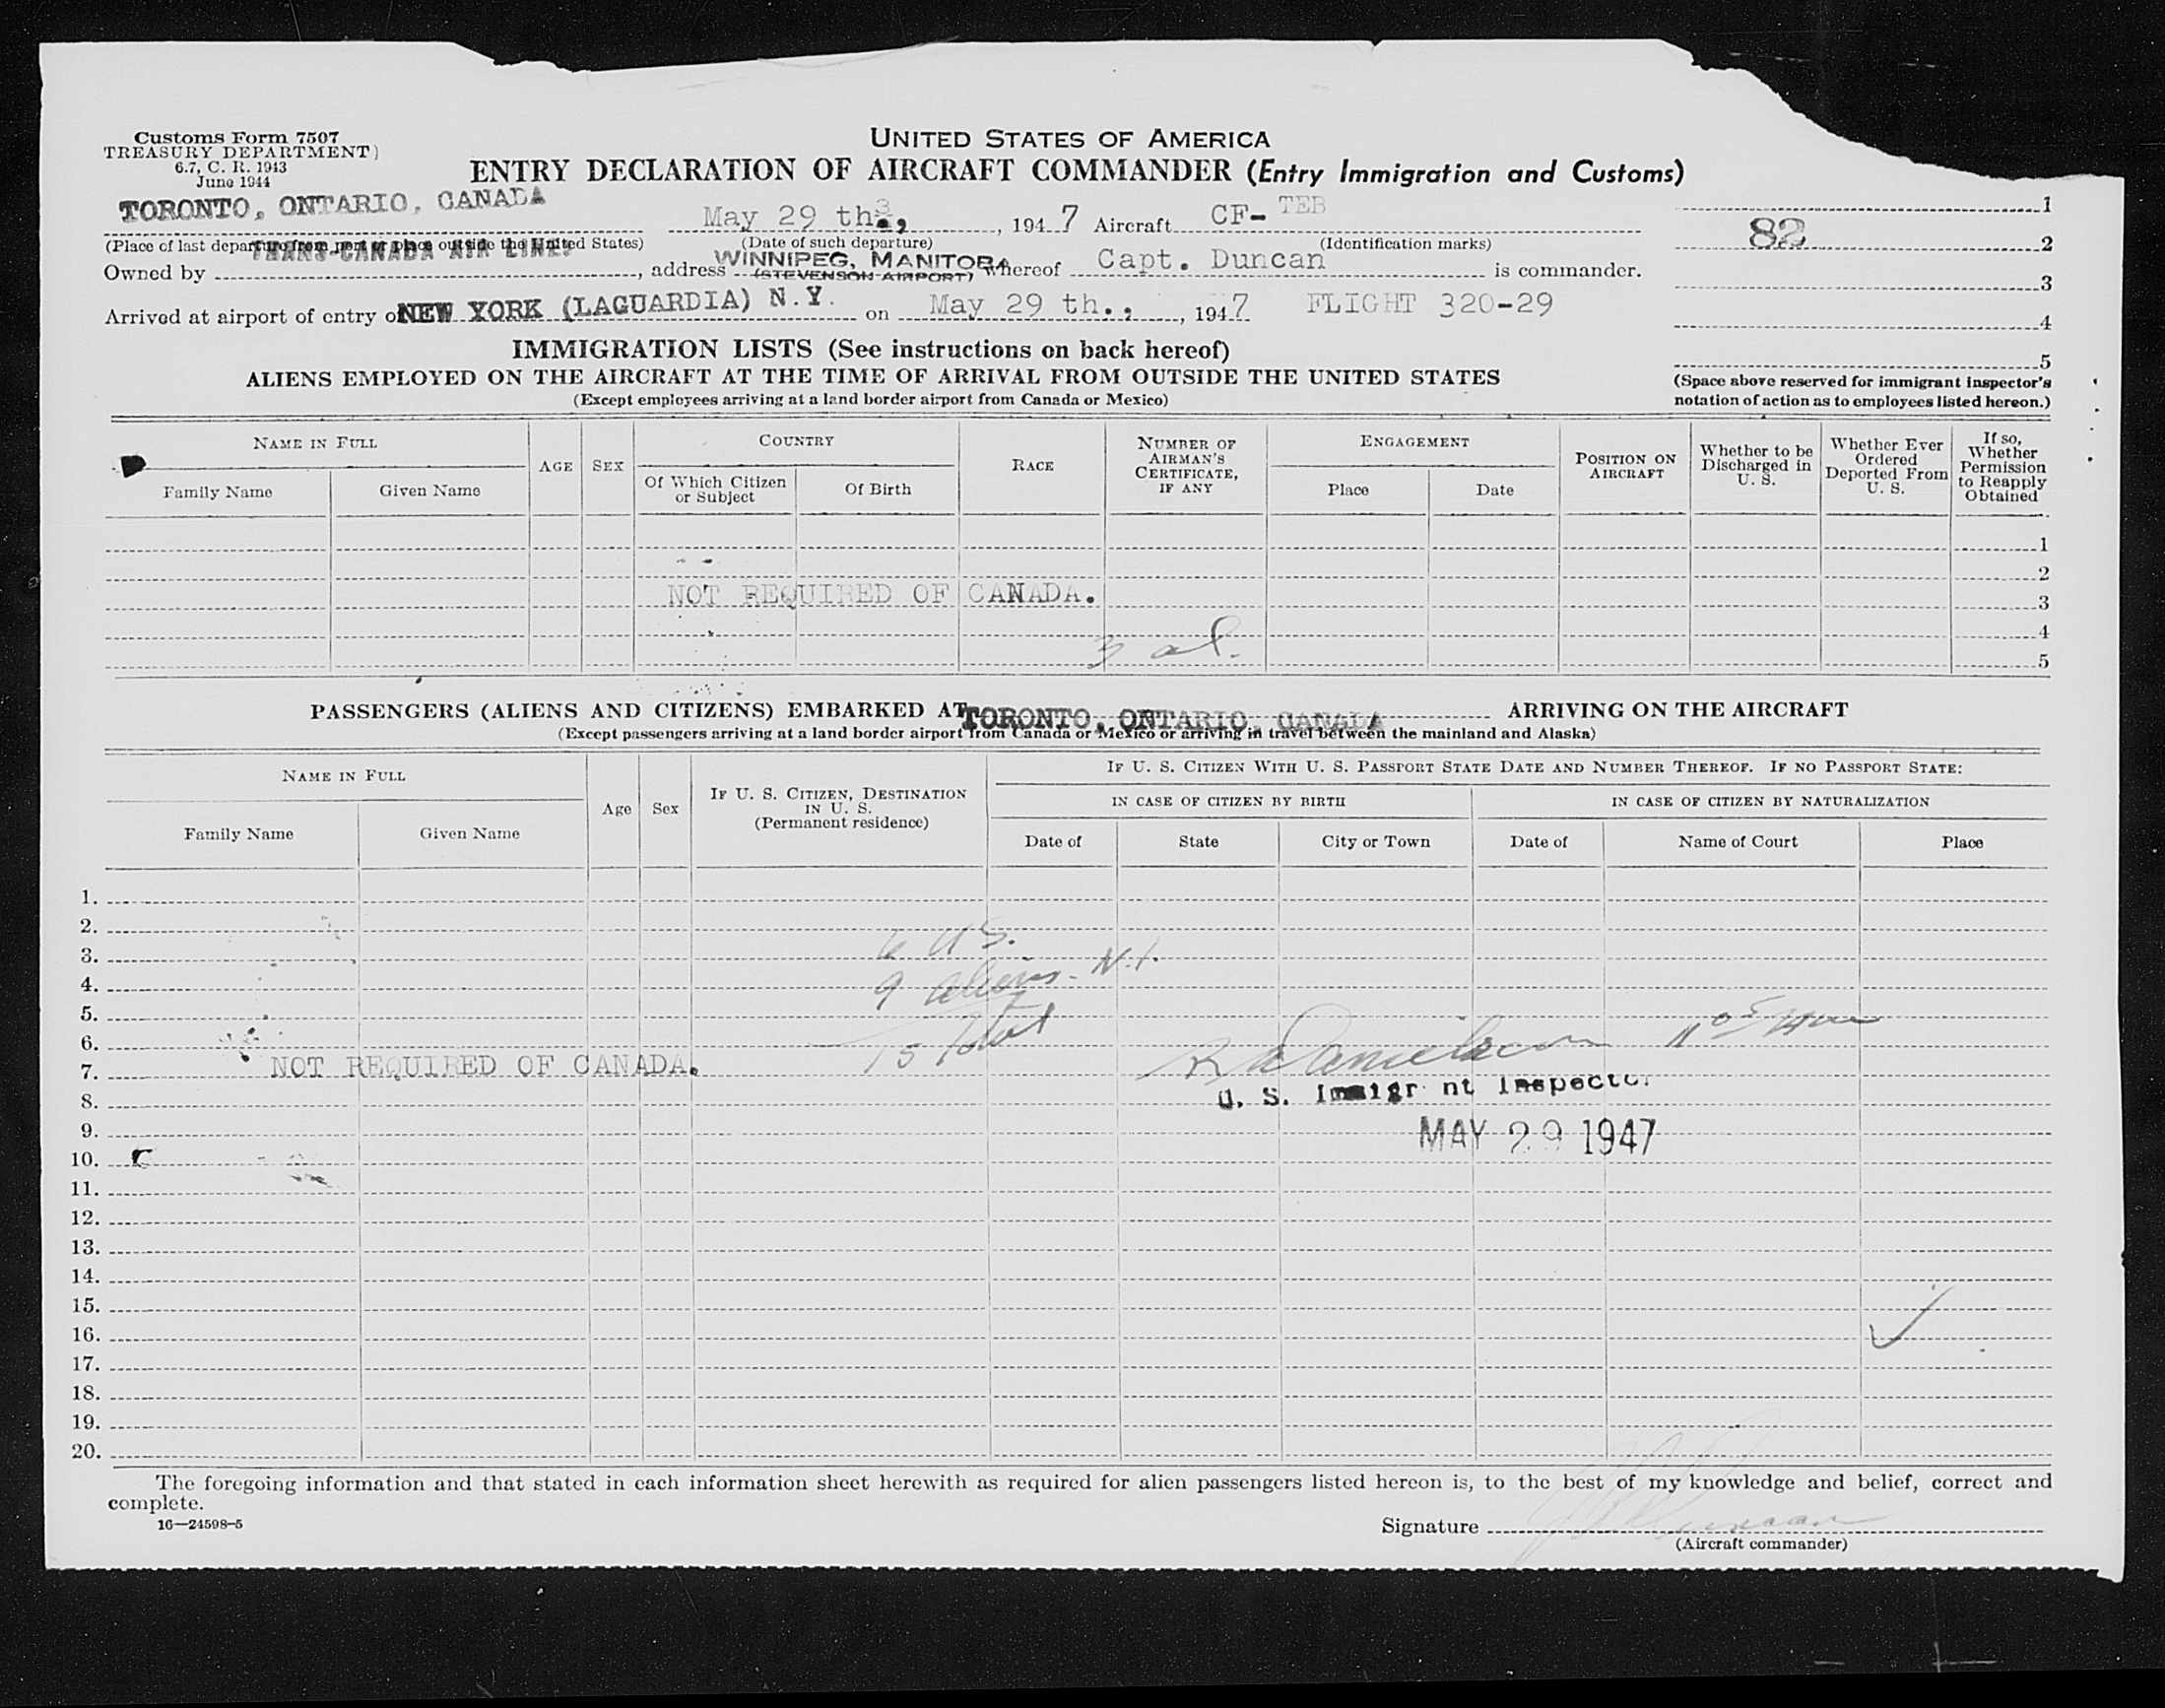 Customs Form 7507
TREASURY DEPARTMENT)
6.7, C. R. 1943
June 1944
UNITED STATES OF AMERICA
ENTRY DECLARATION OF AIRCRAFT COMMANDER (Entry Immigration and Customs)
TORONTO, ONTARIO, CANADA
May 29 th., , 1947 Aircraft CF-TEB
(Place of last departure from port or place outside the United States) (Date of such departure) (Identification marks)
Owned by TRANS-CANADA AIR LINES, address WINNIPEG, MANITOBA (STEVENSON AIRPORT) whereof Capt. Duncan is commander.
Arrived at airport of entry of NEW YORK (LAGUARDIA) N.Y. on May 29 th., , 1947 FLIGHT 320-29
1
82 2
3
4
5
(Space above reserved for immigrant inspector's
notation of action as to employees listed hereon.)
IMMIGRATION LISTS (See instructions on back hereof)
ALIENS EMPLOYED ON THE AIRCRAFT AT THE TIME OF ARRIVAL FROM OUTSIDE THE UNITED STATES
(Except employees arriving at a land border airport from Canada or Mexico)
NAME IN FULL
Family Name
Given Name
AGE
SEX
COUNTRY
Of Which Citizen or Subject
Of Birth
RACE
NUMBER OF AIRMAN'S CERTIFICATE, IF ANY
ENGAGEMENT
Place
Date
POSITION ON AIRCRAFT
Whether to be Discharged in U. S.
Whether Ever Ordered Deported From U. S.
If so, Whether Permission to Reapply Obtained
1
2
NOT REQUIRED OF CANADA. 3
4
3 al. 5
PASSENGERS (ALIENS AND CITIZENS) EMBARKED AT TORONTO, ONTARIO, CANADA ARRIVING ON THE AIRCRAFT
(Except passengers arriving at a land border airport from Canada or Mexico or arriving in travel between the mainland and Alaska)
NAME IN FULL
Family Name
Given Name
Age
Sex
IF U. S. CITIZEN, DESTINATION IN U. S.
(Permanent residence)
IF U. S. CITIZEN WITH U. S. PASSPORT STATE DATE AND NUMBER THEREOF. IF NO PASSPORT STATE:
IN CASE OF CITIZEN BY BIRTH
Date of
State
City or Town
IN CASE OF CITIZEN BY NATURALIZATION
Date of
Name of Court
Place
1.
2.
3. 6 U S.
4. 9 aliens - N.I.
5.
6. 15 Total
7. NOT REQUIRED OF CANADA.
8. U. S. Immigrant Inspector
9. MAY 29 1947
10.
11.
12.
13.
14.
15.
16.
17.
18.
19.
20.
The foregoing information and that stated in each information sheet herewith as required for alien passengers listed hereon is, to the best of my knowledge and belief, correct and
complete.
16—24598-5
Signature Duncan
(Aircraft commander)